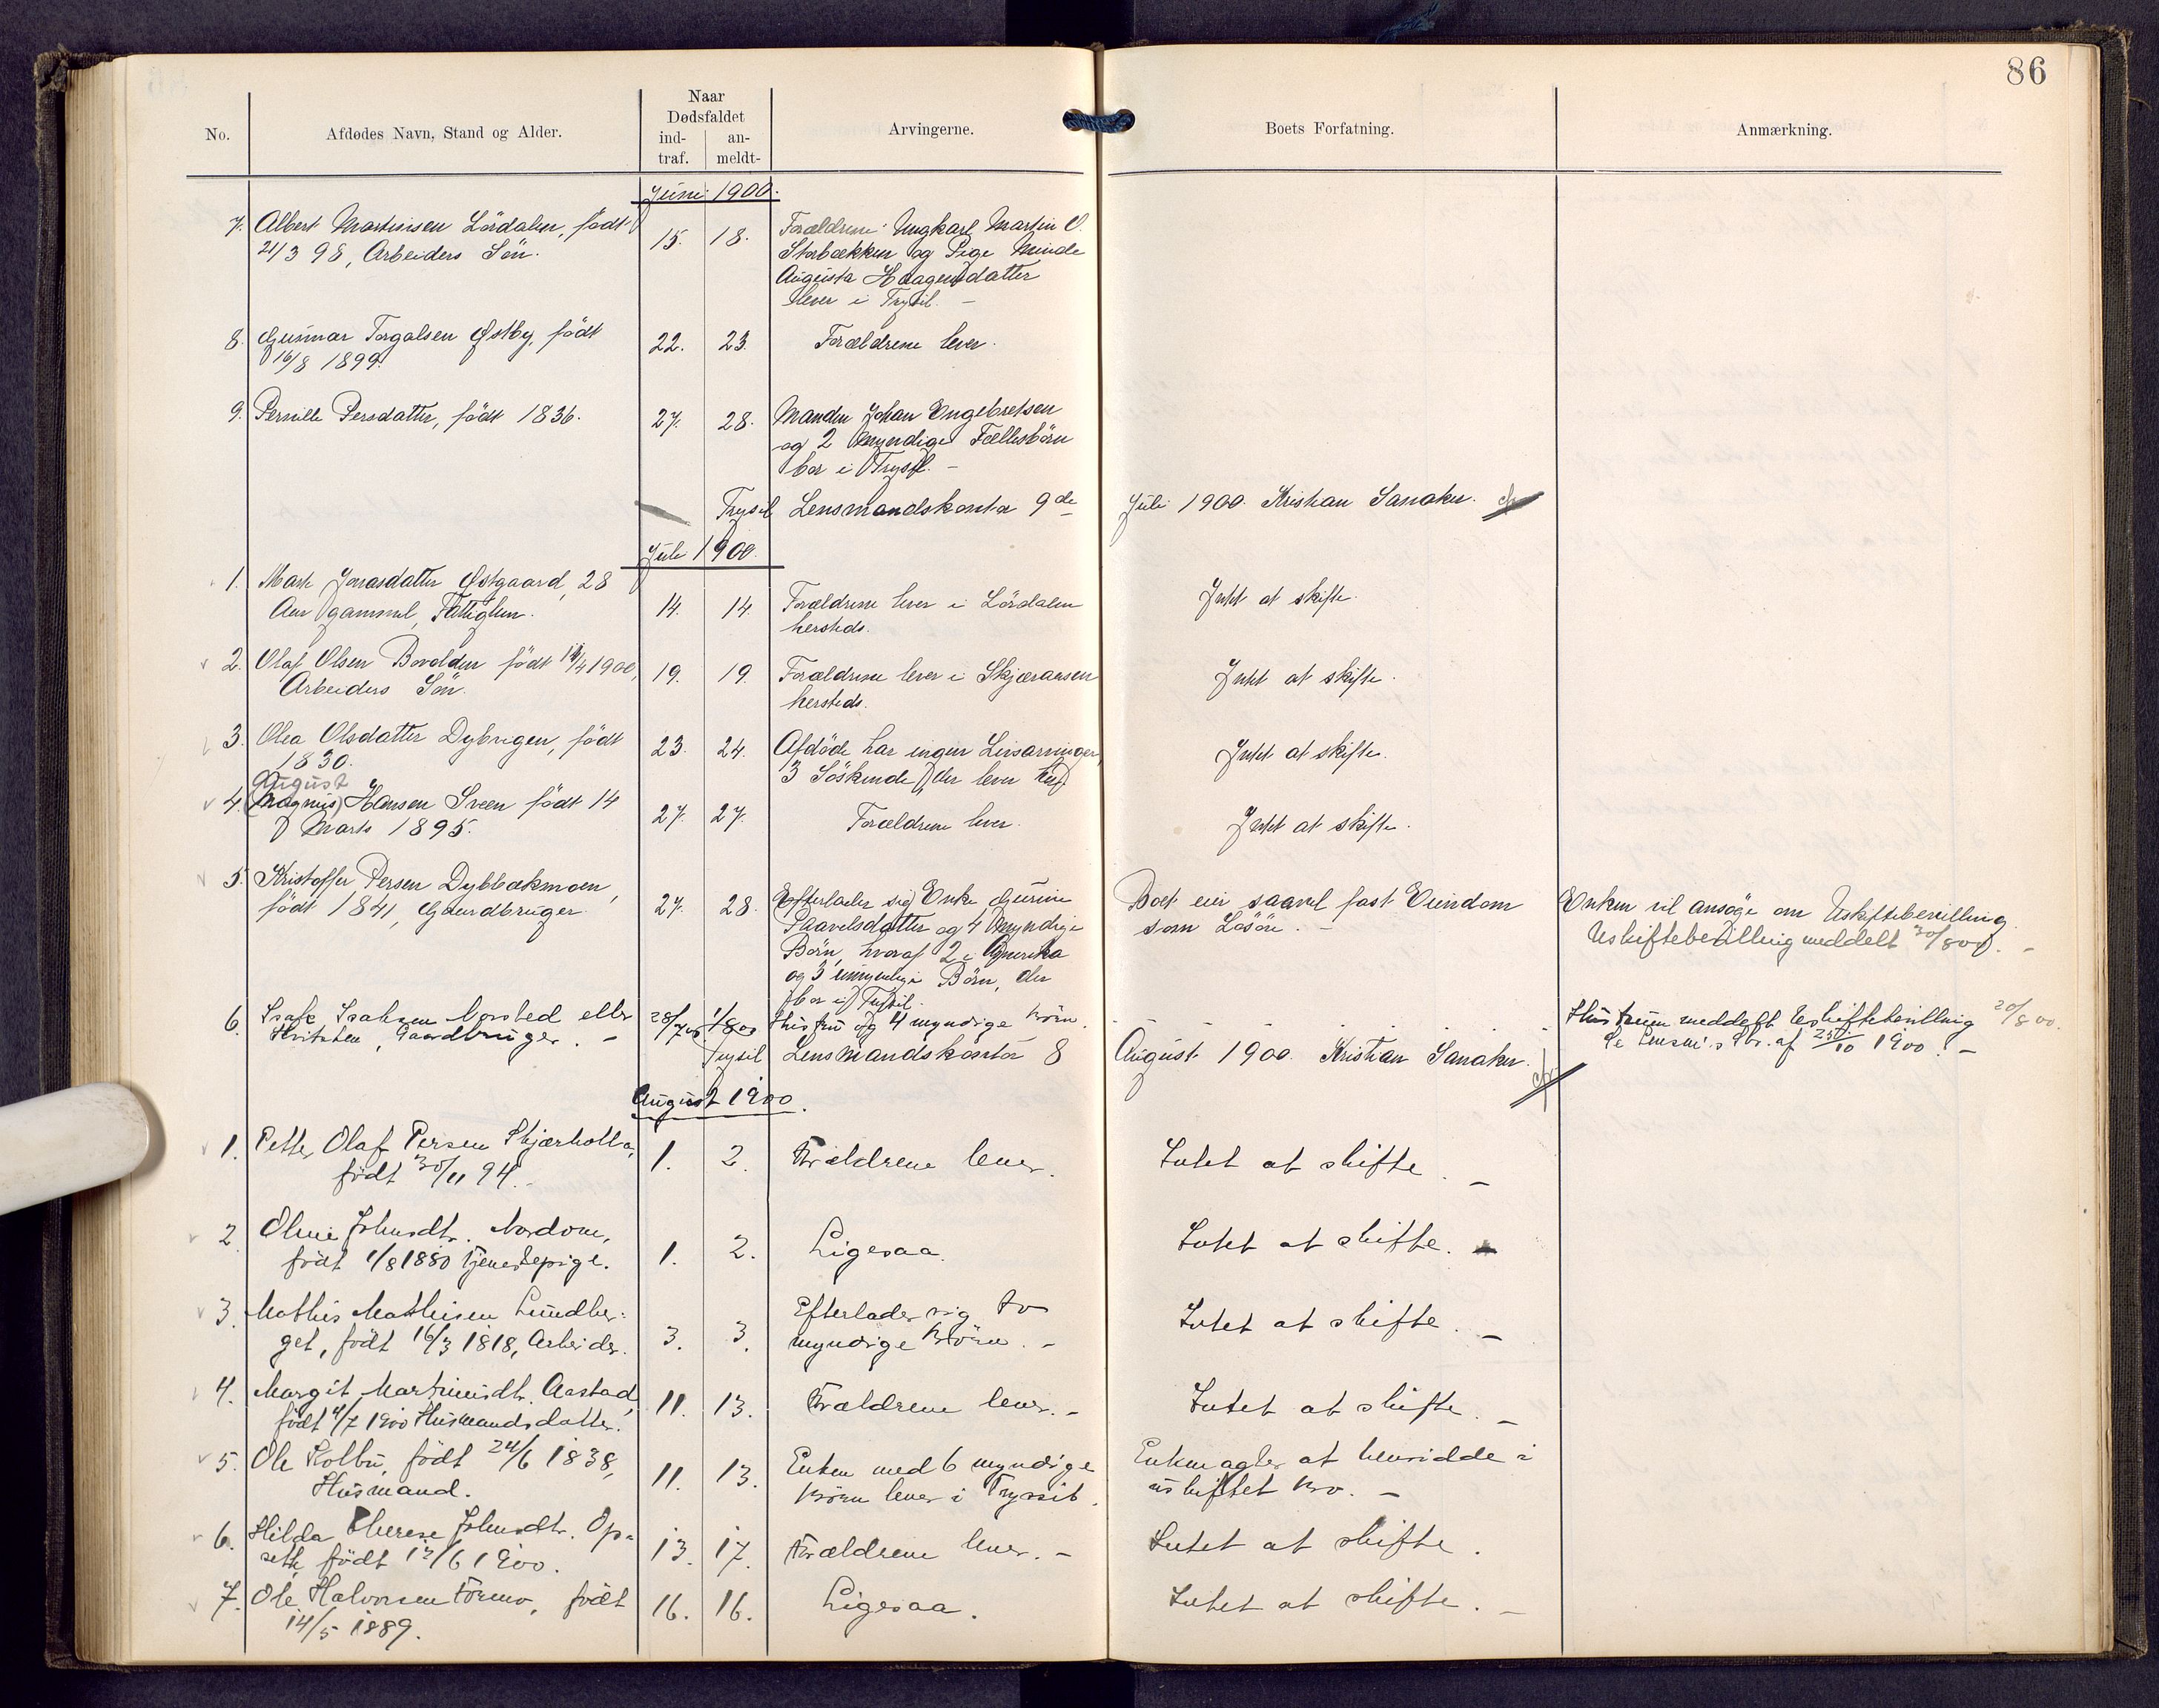 86
No.
Afdødes Navn, Stand og Alder.
Naar
Dødsfaldet
ind-
traf.
an-
meldt-
Arvingerne.
Boets Forfatning.
Anmærkning.
Juni 1900.
7. Albert Martinisen Lördalen, födt
21/3 98, Arbeiders Sön.
15. 18.
Forældrene: Ungkarl Martin O.
Storbækken og Pige Minda
Augusta Haagensdatter
lever i Trysil. -
8. Gunnar Torgalsen Østby, födt
16/8 1899.
22. 23.
Forældrene lever.
9. Pernille Persdatter, födt 1836.
27. 28.
Manden Johan Engebretsen
og 2 myndige Fællesbörn
bor i Trysil. -
Trysil Lensmandskontor 9de Juli 1900. Kristian Sanaker.
Juli 1900.
1. Marte Jonasdatter Østgaard, 28
Aar gammel, Fattiglem.
14. 14.
Forældrene lever i Lördalen
hersteds.
Intet at skifte.
2. Olaf Olsen Bovolden födt 14/4 1900,
Arbeiders Sön.
19. 19.
Forældrene lever i Skjæraasen
hersteds.
Intet at skifte.
3. Olea Olsdatter Dybvigen, födt
1830.
23. 24.
Afdöde har ingen Livsarvinger,
3 Söskende, der lever her.
Intet at skifte.
August
4. (Magnus) Hansen Sveen födt 14
Marts 1895.
27. 27.
Forældrene lever.
Intet at skifte.
5. Kristoffer Persen Dybbækmoen,
födt 1841, Gaardbruger.
27. 28.
Efterlader sig Enke Gurine
Paavelsdatter og 4 myndige
Börn, hvoraf 2 i Amerika
og 3 umyndige Börn, der
bor i Trysil.
Boet eier saavel fast Eiendom
som Lösöre. -
Enken vil ansöge om Uskiftebevilling.
Uskiftebevilling meddelt 30/8 00. -
6. Isak Isaksen Norsted eller
Kvitsten, Gaardbruger. -
28/7 00 1/8 00
Hustru og 4 myndige Börn.
Hustruen meddelt Uskiftebevilling 20/8 00.
af 25/10 1900. -
Trysil Lensmandskontor 8 August 1900. Kristian Sanaker.
August 1900.
1. Petter Olaf Persen Skjærholla,
födt 30/11 94.
1. 2.
Forældrene lever.
Intet at skifte. -
2. Oline Johnsdtr. Nordom,
födt 1/8 1880 Tjenestepige.
1. 2.
Ligesaa.
Intet at skifte.
3. Mathis Mathisen Lundber-
get, födt 16/3 1818, Arbeider.
3. 3.
Efterlader sig to
myndige Börn. -
Intet at skifte. -
4. Margit Martinusdtr. Aastad,
födt 4/7 1900 Husmandsdatter.
11. 13.
Forældrene lever. -
Intet at skifte. -
5. Ole Kolbu, födt 24/6 1838,
Husmand.
11. 13.
Enken med 6 myndige
Börn lever i Trysil.
Enken agter at hensidde i
uskiftet Bo. -
6. Hilda Therese Johnsdtr. Op-
seth, födt 12/6 1900.
13. 17.
Forældrene lever. -
Intet at skifte.
7. Ole Halvorsen Formo, födt
14/5 1889.
16. 16.
Ligesaa.
Intet at skifte. -